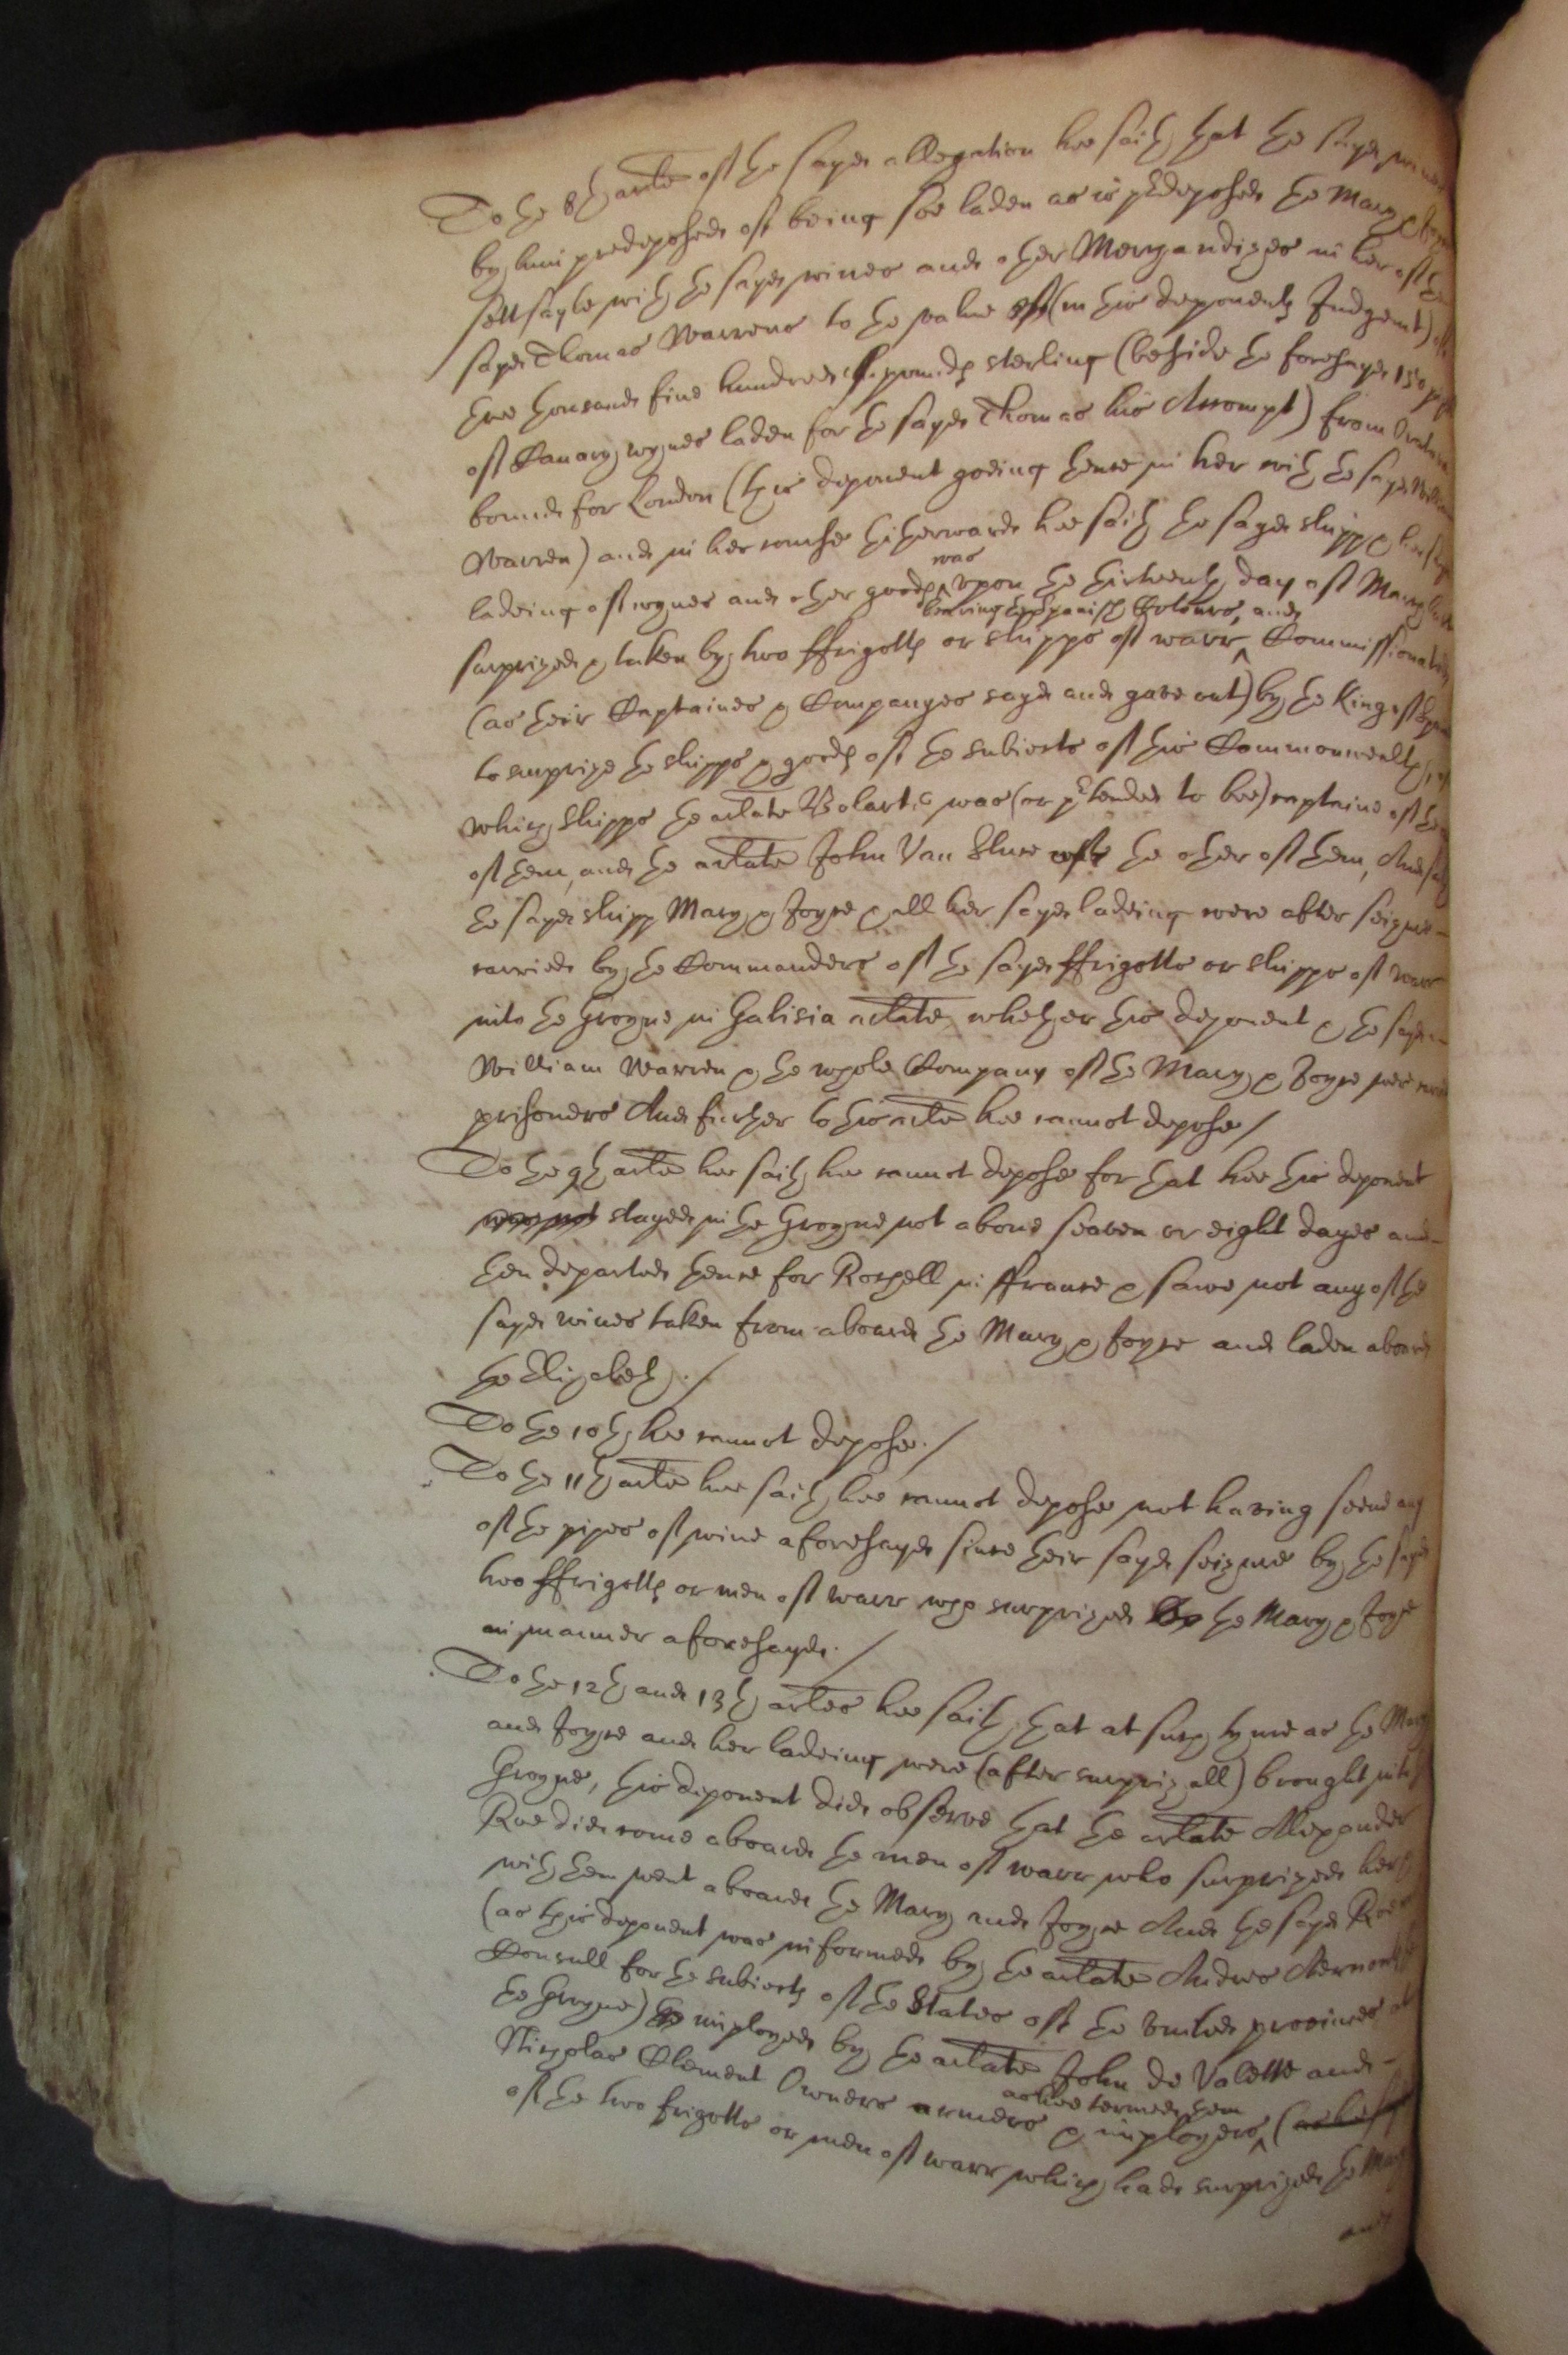 To the 8th arlte of the sayde allegation hee saith that the sayde wines
by him predeposed of being soe laden as is predeposed the Mary & Joyce
sett sayle with the sayde wines and other Merchandizes in her of the
sayde Thomas Warrens to the value of (in this deponents Judgemt)
three thousand five hundred pounds sterling (beside the foresayde 150 pipes
of Canary wynes laden for the sayde Thomas his Accompt) from Oratava
bound for London (this deponent goeing thence in her with the sayde William
Warren) and in her course hitherwards hee saith the sayde shipp & her sayd
ladeing of wynes and other goods was upon the thirteenth day of March last
surprized & taken by two ffrigotts or shipps of warr bearing Spanish Colours, and Commissionated
(as their Captaines & Companyes sayd and gave out) by the King of Spaine
to surprize the shipps & goods of the subiects of this Commonwealth, of
which shipps the arlate Bolart was (or pretended to bee) captaine of the
of them, and the arlate John Van Sluce of the other of them, And saith
the sayde shipp Mary & Joyce & all her sayde ladeing were after seizure
carried by the Commanders of the sayde ffrigotts or shipps of warr
into the Groyne in Galisia arlate, whether this deponent & the sayde
William Warren & the whole Company of the Mary & Joyce were
prisoners And further to this arlte hee cannot depose /
To the 9th arlte hee saith hee cannot depose for that hee this deponent
was not stayed in the Groyne not above seaven or eight dayes and
then departed thence for Rochell in ffrance & sawe not any of the
sayde wines taken from aboard the Mary & Joyce and laden aboard
the Elizabeth. /
To the 10th hee cannot depose. /
To the 11th arlte hee saith hee cannot depose not having seene any
of the pipes of wine aforesayde since their sayde seizure by the sayde
two ffrigotts or men of warr who surprized the Mary & Joyce
in manner aforesayde. /
To the 12th and 13th arles hee saith that at such tyme as the Mary
and Joyce and her ladeing were (after surprizall) brought into
Groyne, this deponent did observe that the arlate Allexander
Roe did come aboard the men of warr who surprized her &
with them went aboard the Mary and Joyce And the sayde Roe
(as this deponent was informed by the arlate Andrew
Consull for the subiects of the States of the United provinces at
the Groyne) imployed by the arlate John de Valette and
Nicholas Clement Owners armers & imployers as hee termed them
of the two frigotts or men of warr which had surprized the Mary
and